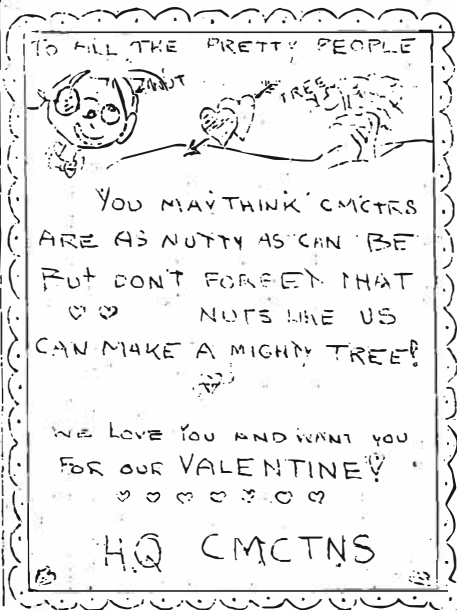 TO ALL THE PRETTY PEOPLE
NUT
TREE
YOU MAY THINK CMCTRS
ARE AS NUTTY AS CAN BE
BUT DON'T FORGET THAT
NUTS LIKE US
CAN MAKE A MIGHTY TREE!
WE LOVE YOU AND WANT YOU
FOR OUR VALENTINE!
HQ CMCTNS